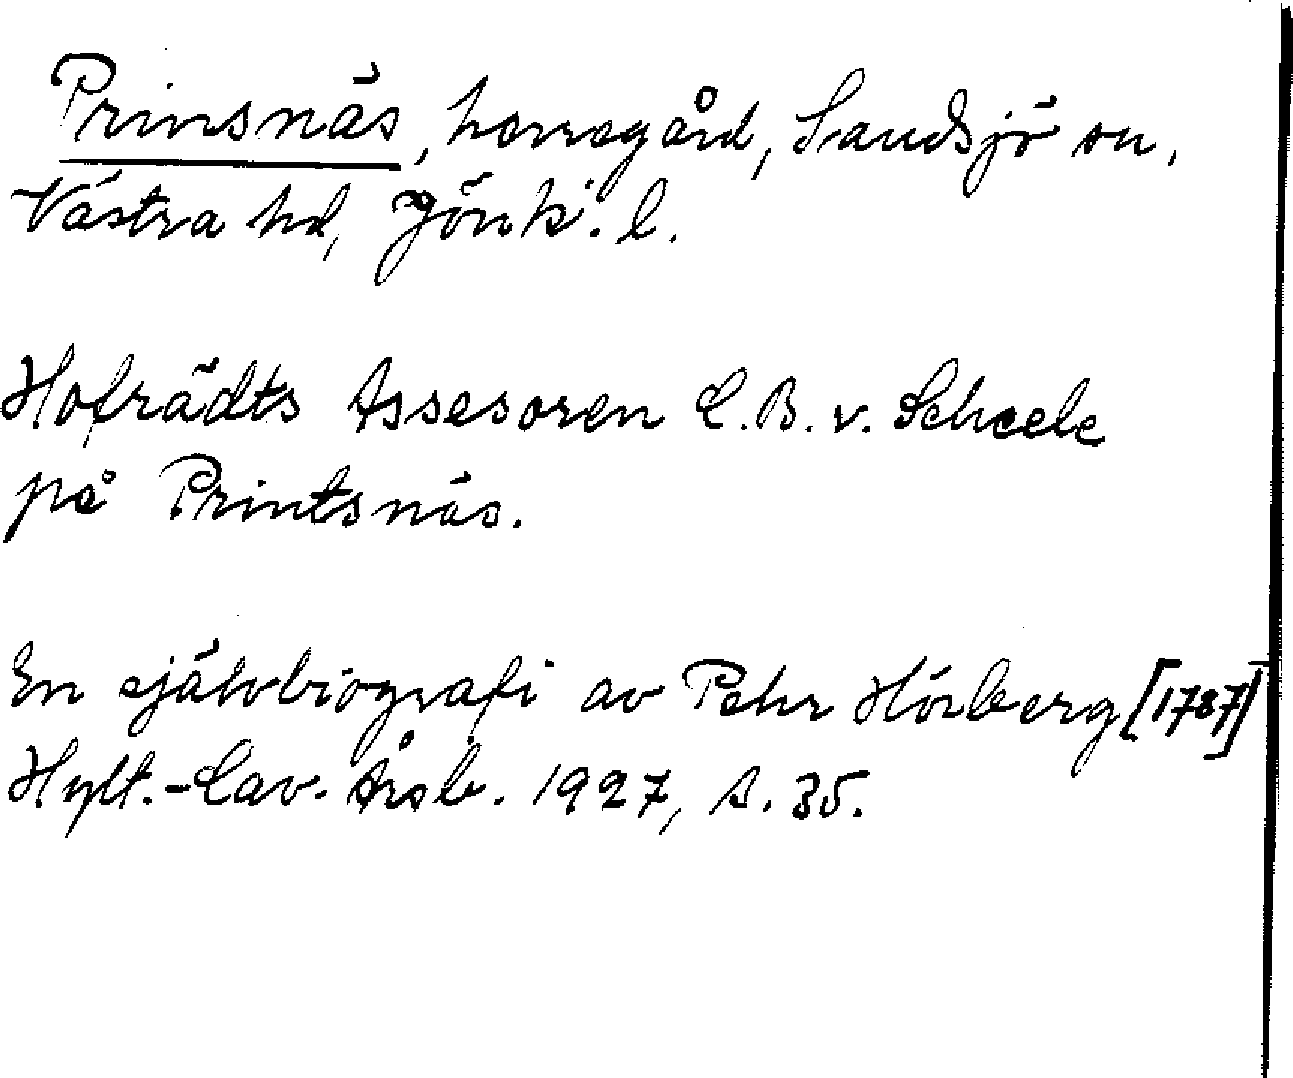 Prinsnäs, herregård, Sandsjö sn,
Västra hd, Jönk. l.
Hofrådts Assesoren C.B. v. Scheele
på Printsnäs.
En självbiografi av Pehr Hörberg [1787]
Hylt.-Cav. Årsb. 1927, s. 35.